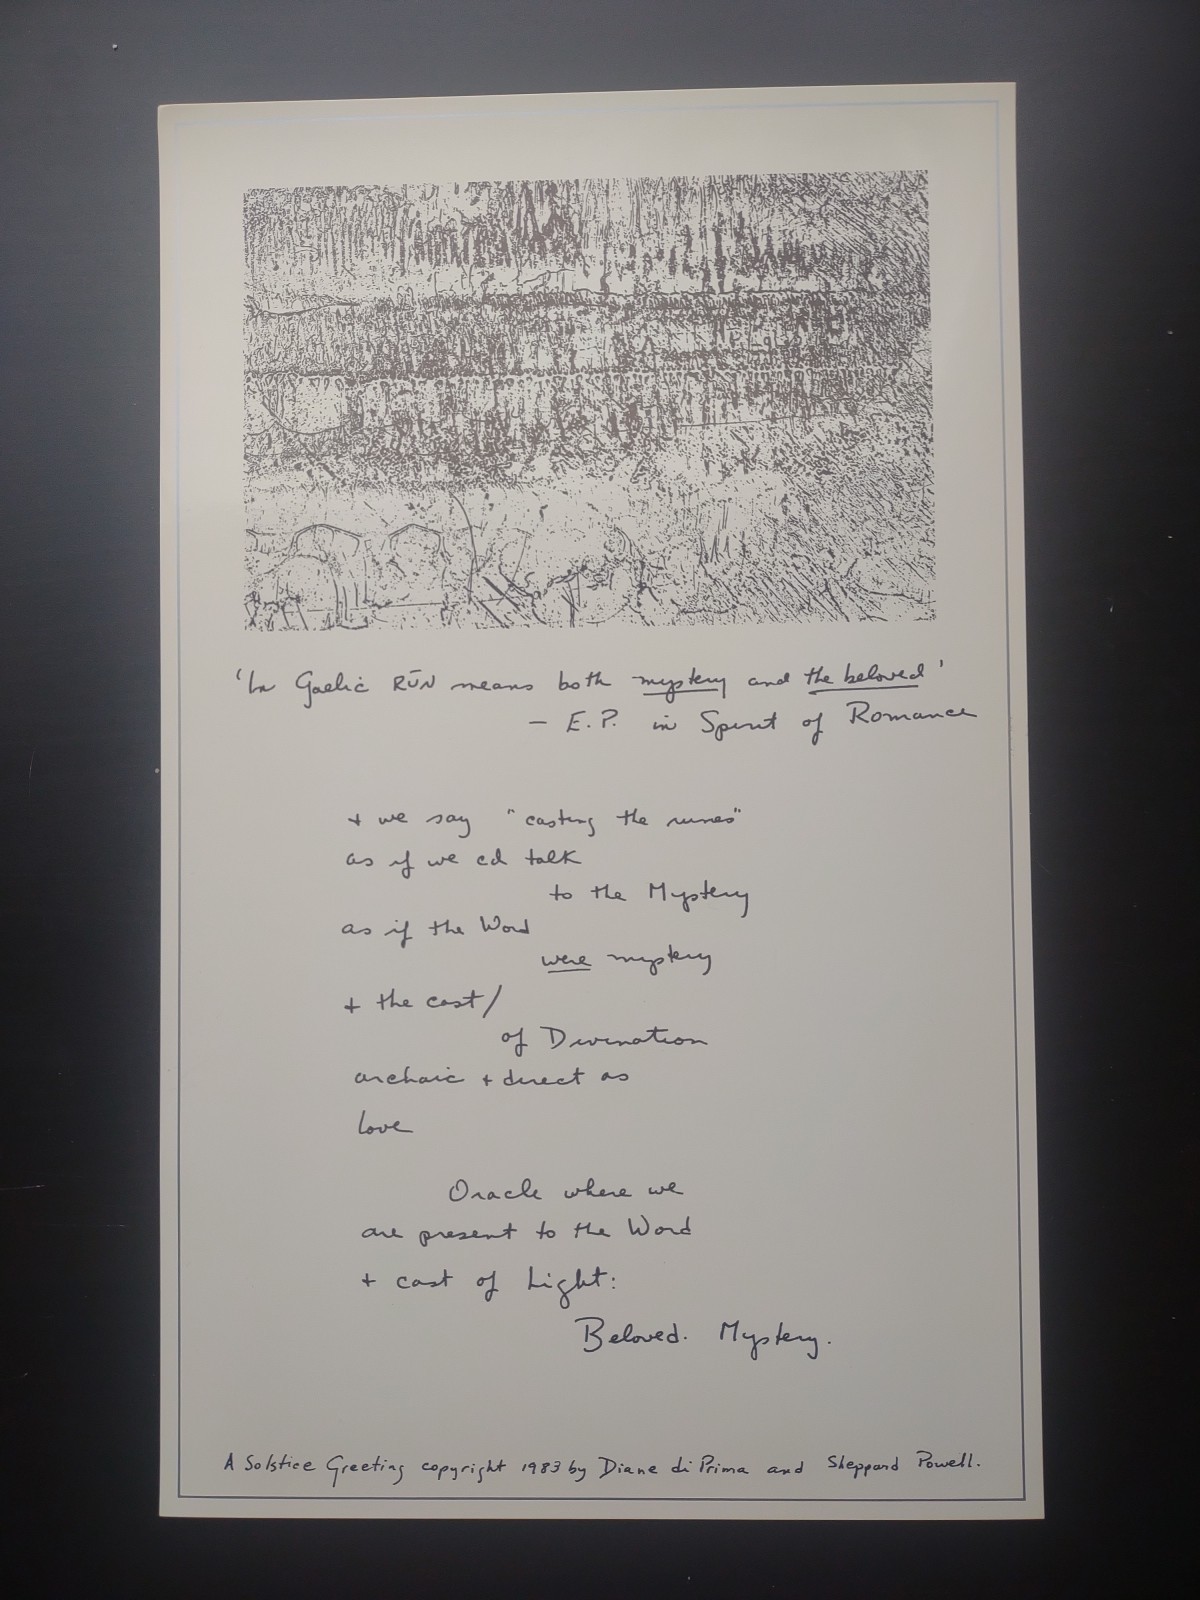 'In Gaelic RŪN means both mystery and the beloved'
— E.P. in Spirit of Romance
+ we say "casting the runes"
as if we cd talk
to the Mystery
as if the Word
were mystery
+ the cast/
of Divination
archaic + direct as
love
Oracle where we
are present to the Word
+ cast of Light:
Beloved. Mystery.
A Solstice Greeting copyright 1983 by Diane di Prima and Sheppard Powell.